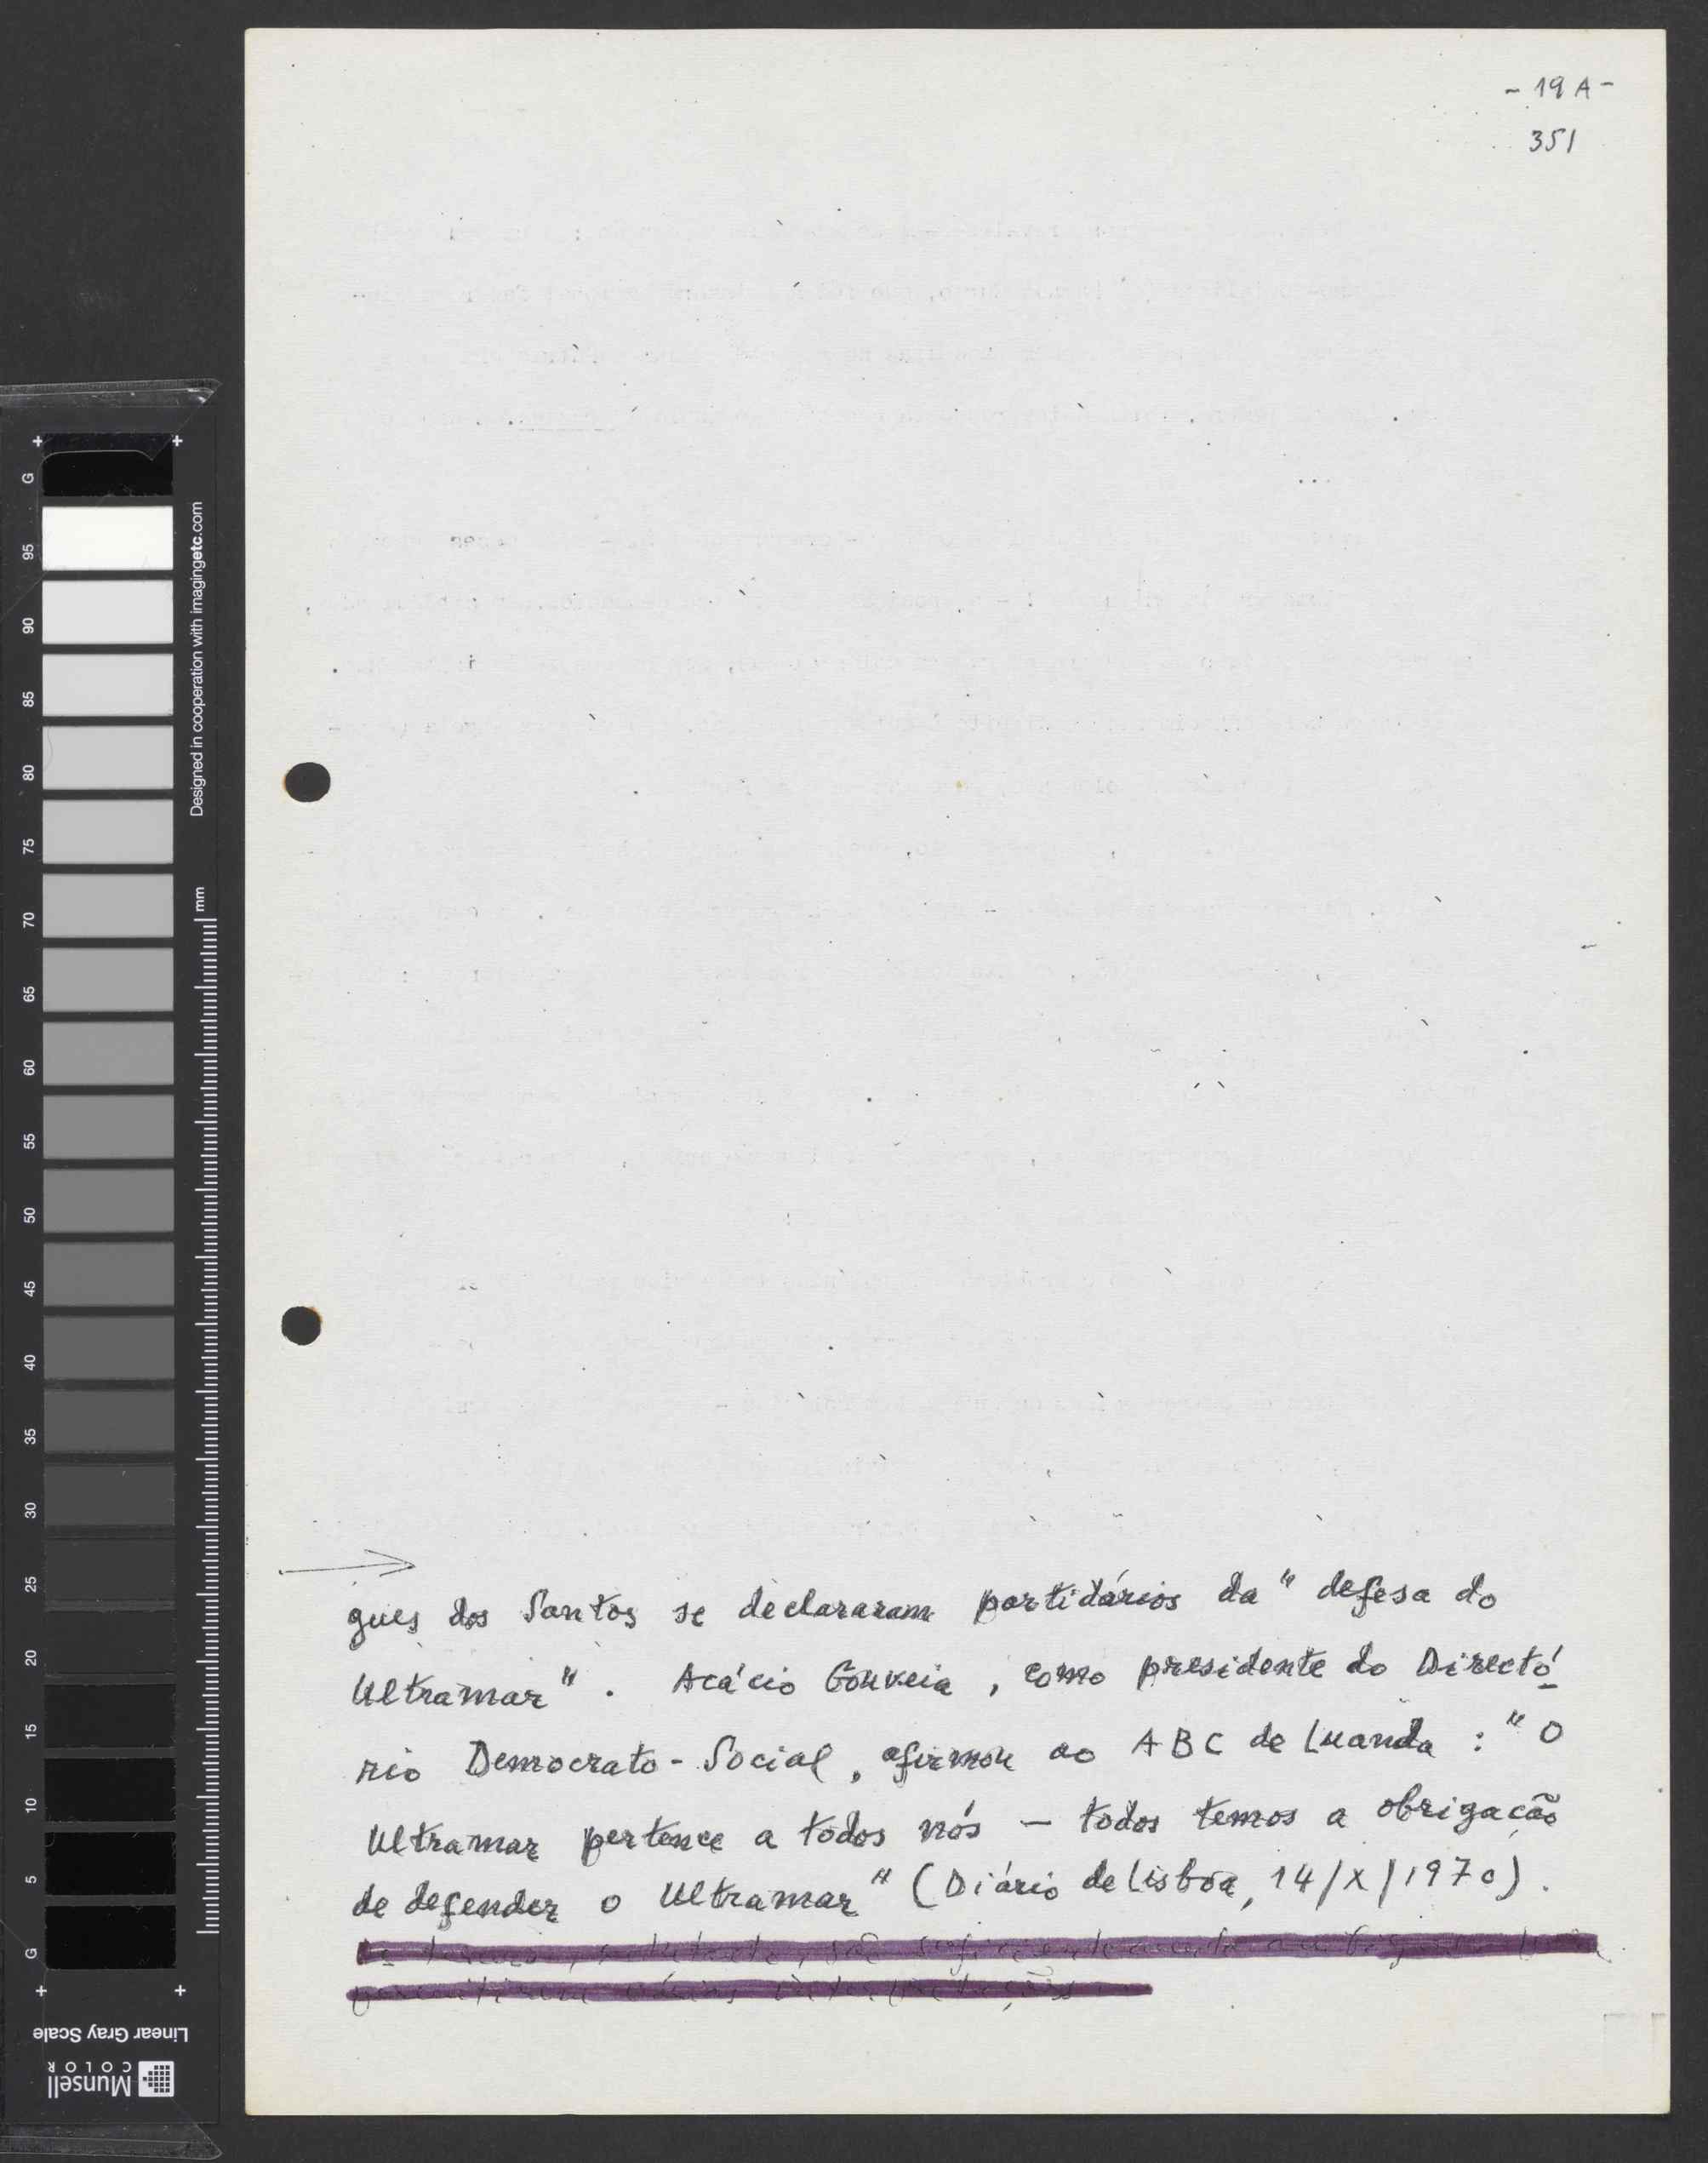 - 19 A -
351
gues dos Santos se declararam partidários da " defesa do
Ultramar ". Acácio Gouveia , como presidente do Directó
rio Democrato - Social , afirmou ao ABC de Luanda : " O
Ultramar pertence a todos nós — todos temos a obrigação
de defender o Ultramar " ( Diário de Lisboa, 14/X/1970) .
são suficientemente
permitirem várias interpretações
G
95
90
85
80
75
70
65
60
55
50
45
40
35
30
25
20
15
10
5
G
Designed in cooperation with imagingetc.com
mm
Linear Gray Scale
Munsell
COLOR